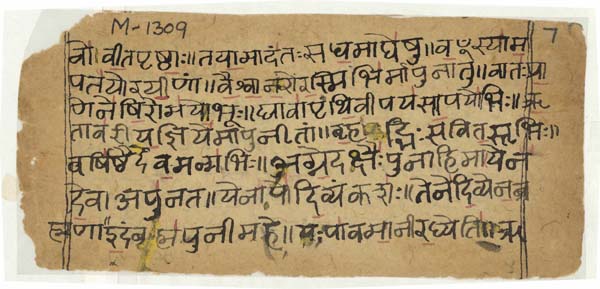 M-1309
7
वो वीतपृष्ठाः॥तयामादंतःसधमाद्येषु॥वयꣳस्याम
पतयोरयीणां॥वैश्वानरोरश्मिभिर्मापुनातु॥वातःप्रा
णेनेषिरोमयोभूः॥द्यावापृथिवीपयसापयोभिः॥ऋ
तावरीयज्ञियेमापुनीतां॥बृहद्भिःसवितस्तृभिः॥
वर्षिष्ठैर्देवमन्मभिः॥अग्नेदक्षैःपुनाहिमायेन
देवाअपुनत॥येनापोदिव्यंकशः॥तेनदिव्येनब्र
ह्मणाइदंब्रह्मपुनीमहे॥यःपावमानीरध्येति॥ऋ